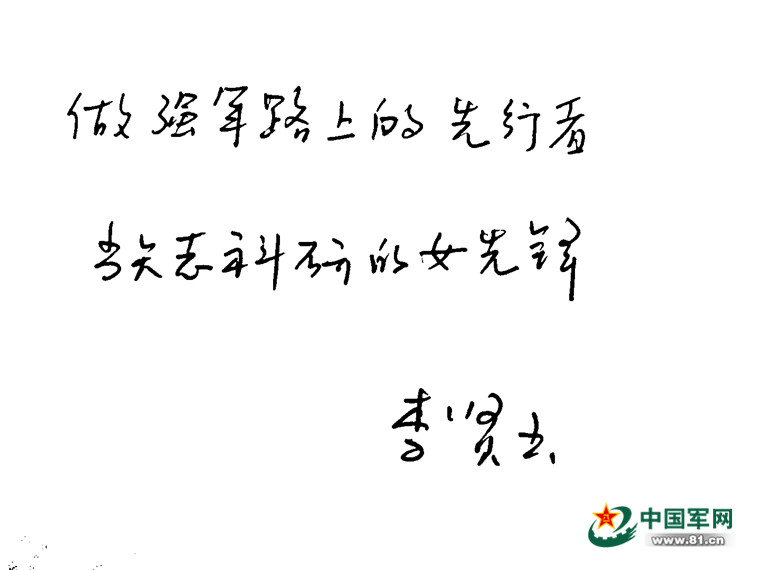 做强军路上的先行者
当矢志科研的女先锋
李贤玉
中国军网
www.81.cn